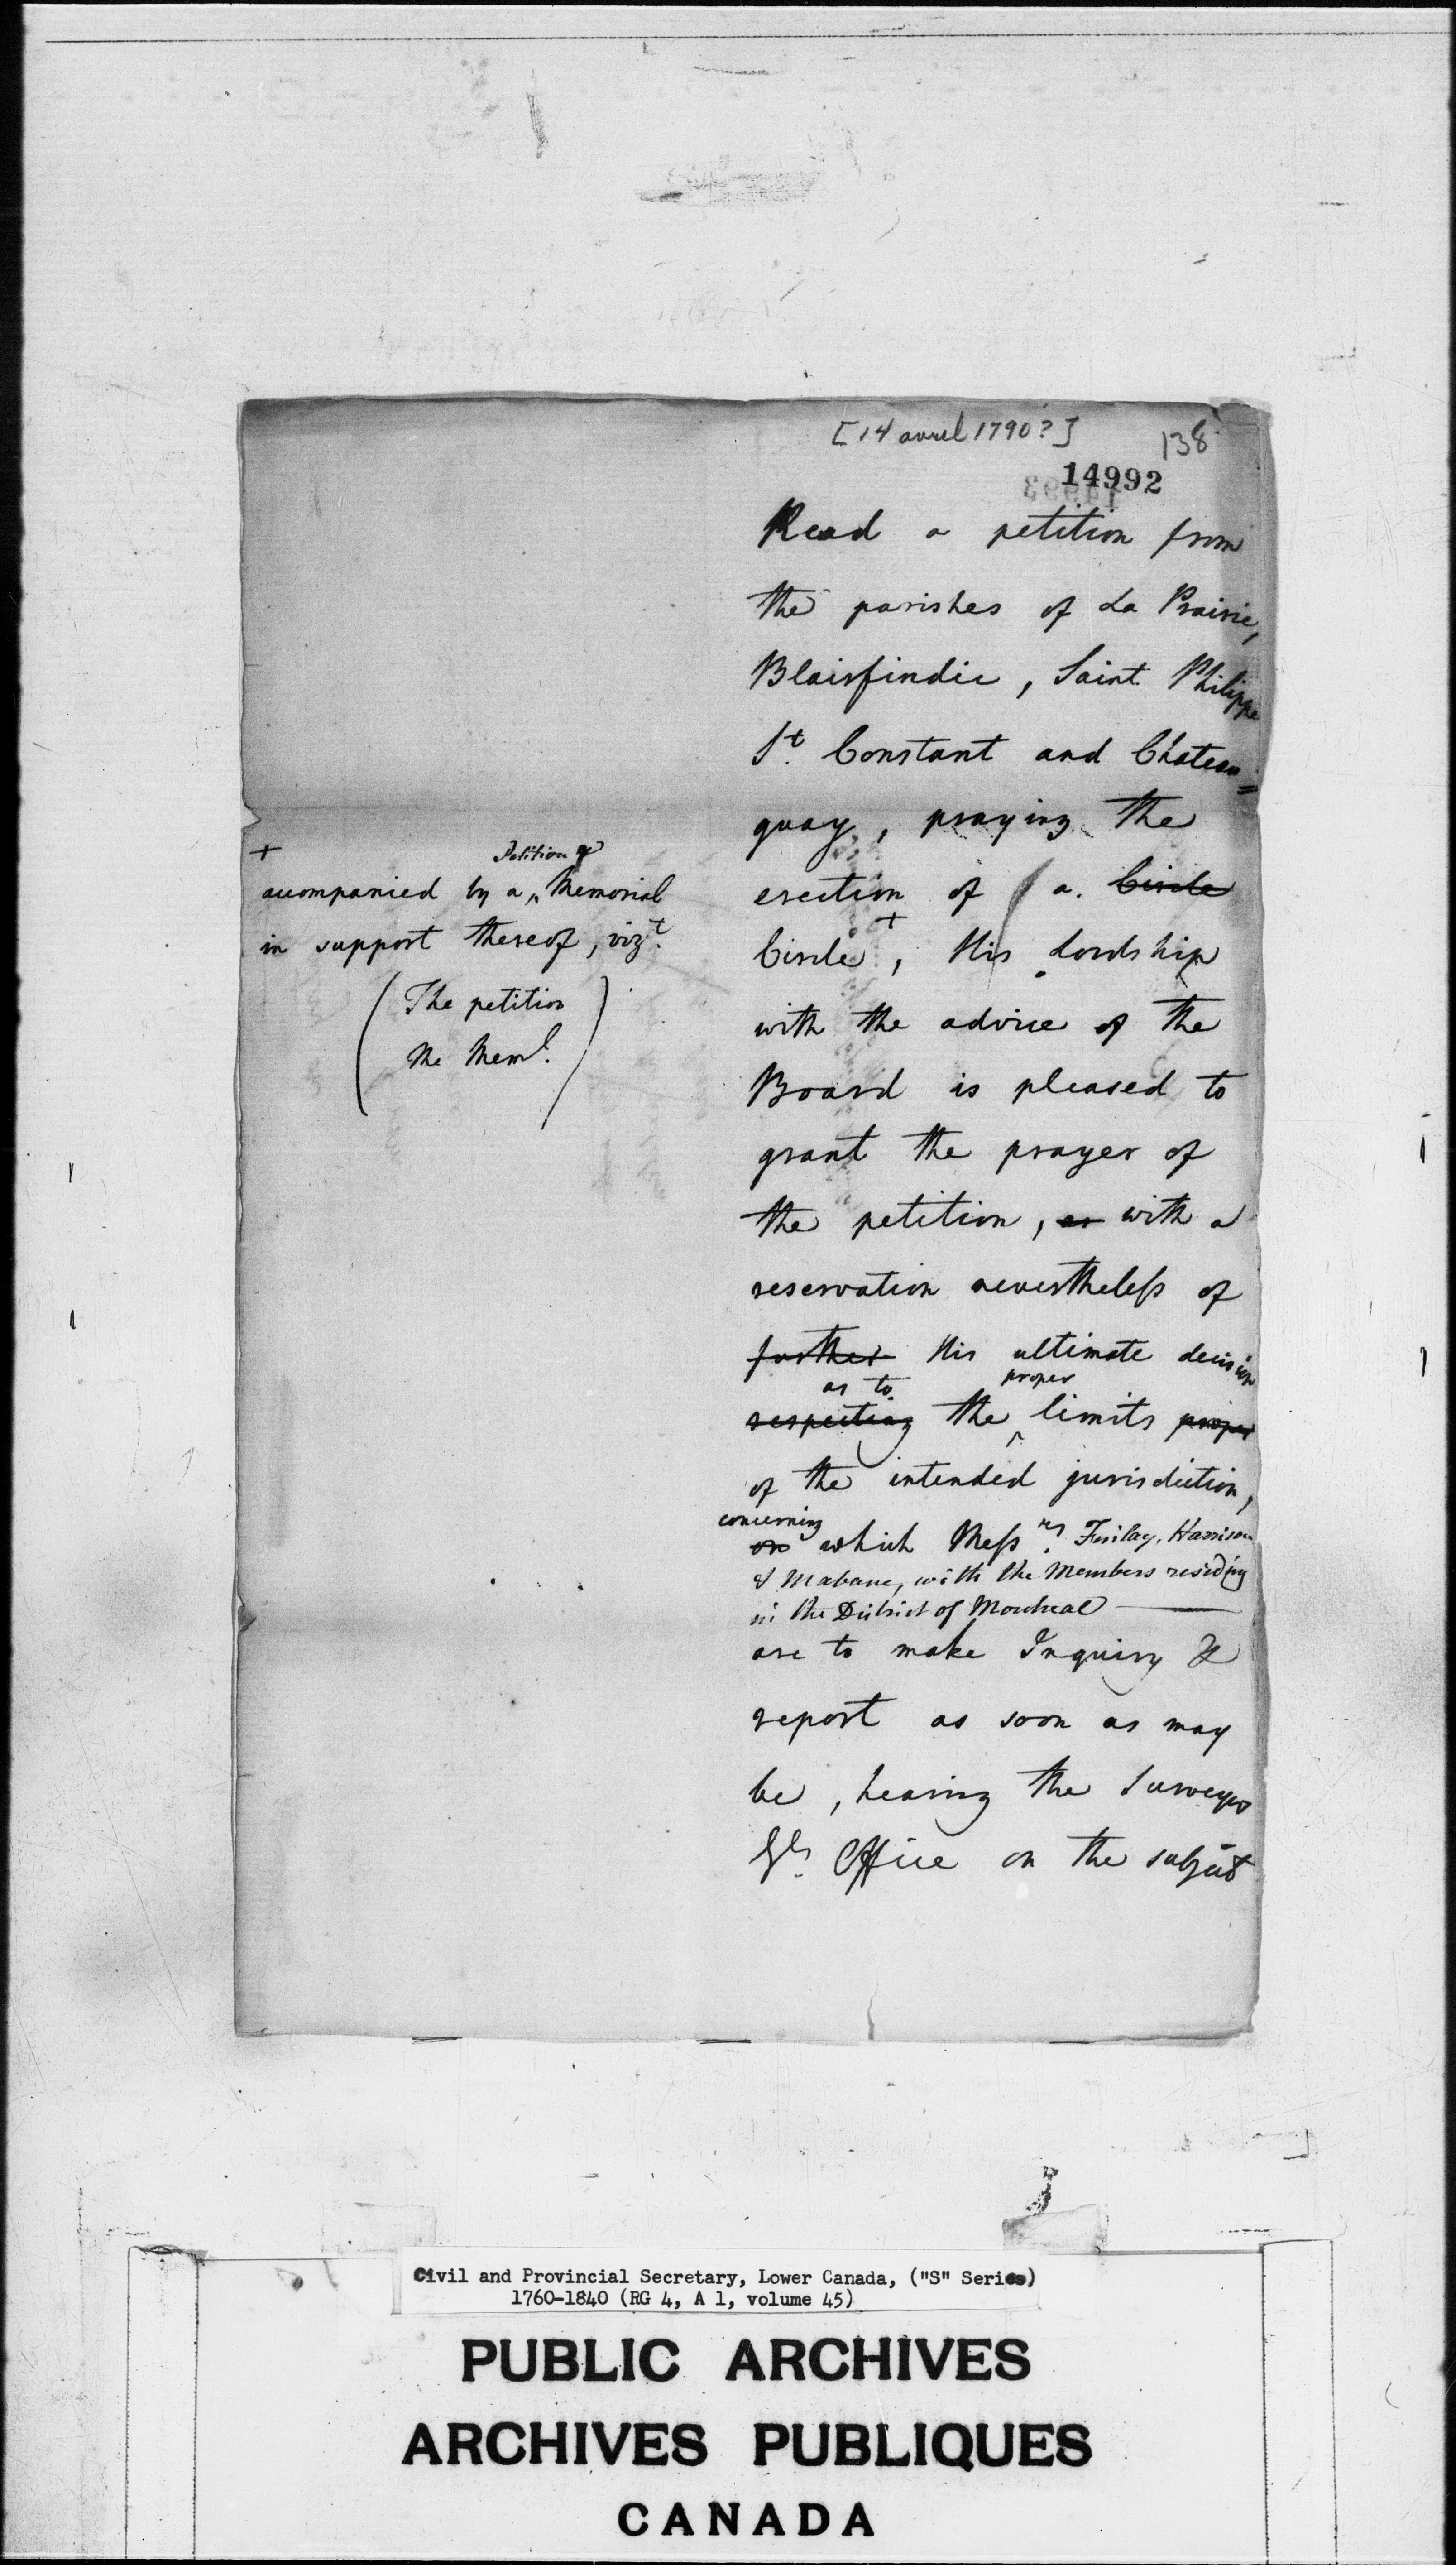 [14 avril 1790?]
138
14992
Read a petition from
the parishes of La Prairie,
Blairfindie, Saint Philippe
St. Constant and Chateau=
guay, praying the
erection of a. Circle
Circle +, His Lordship
with the advice of the
Board is pleased to
grant the prayer of
the petition, or with a
reservation nevertheless of
further His ultimate decision
as to proper
respecting the ^ limits proper
of the intended jurisdiction,
concerning
on which Messrs. Finlay, Harrison
& Mabane, with the Members residing
in the District of Montreal
are to make Inquiry &
report as soon as may
be, hearing the Surveyor
Gls. Office on the subject
+
Petition &
accompanied by a ^ Memorial
in support thereof, vizt.
(The petition
the Meml.)
Civil and Provincial Secretary, Lower Canada, ("S" Series)
1760-1840 (RG 4, A 1, volume 45)
PUBLIC ARCHIVES
ARCHIVES PUBLIQUES
CANADA